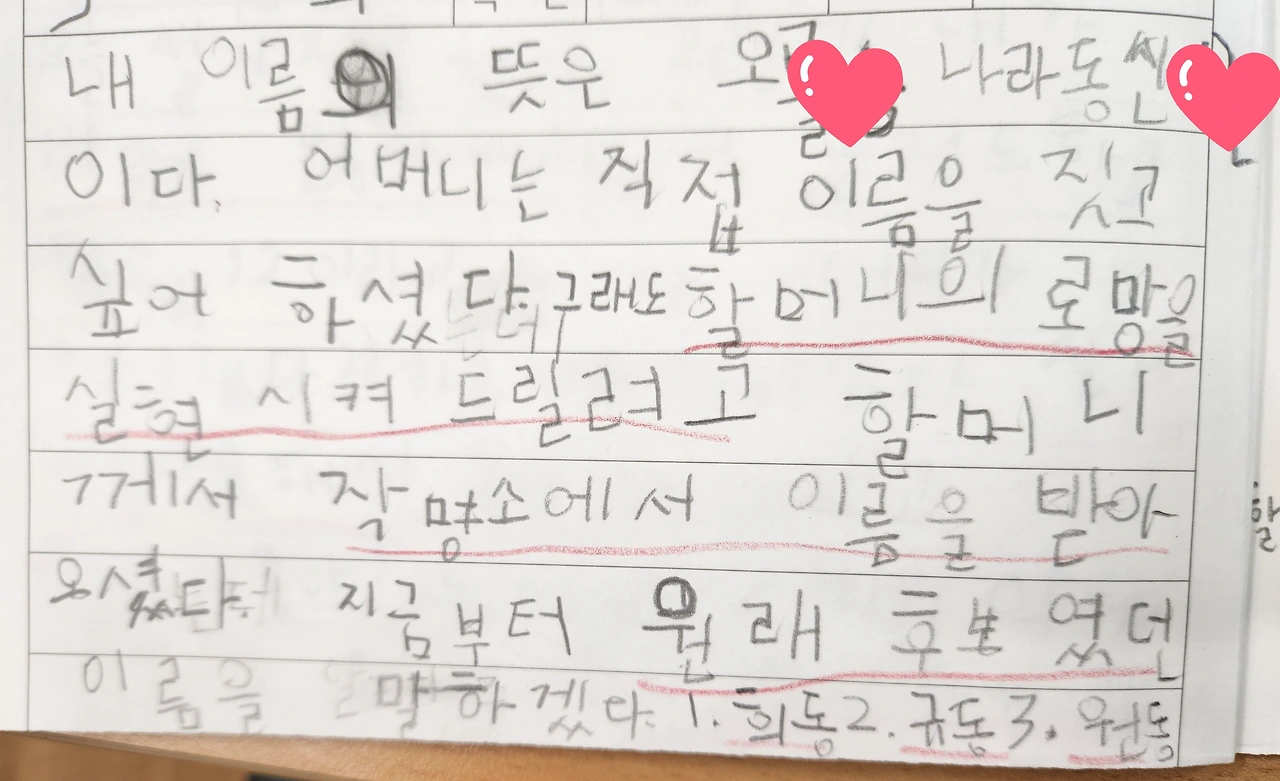 내 이름의 뜻은 나라동
이다. 어머니는 직접 이름을 짓고
싶어 하셨다. 그래도 할머니의 로망을
실현 시켜 드릴려고 할머니
께서 작명소에서 이름을 받아
오셨다. 지금부터 원래 후보였던
이름을 말하겠다. 1. 희동 2. 규동 3. 우원동